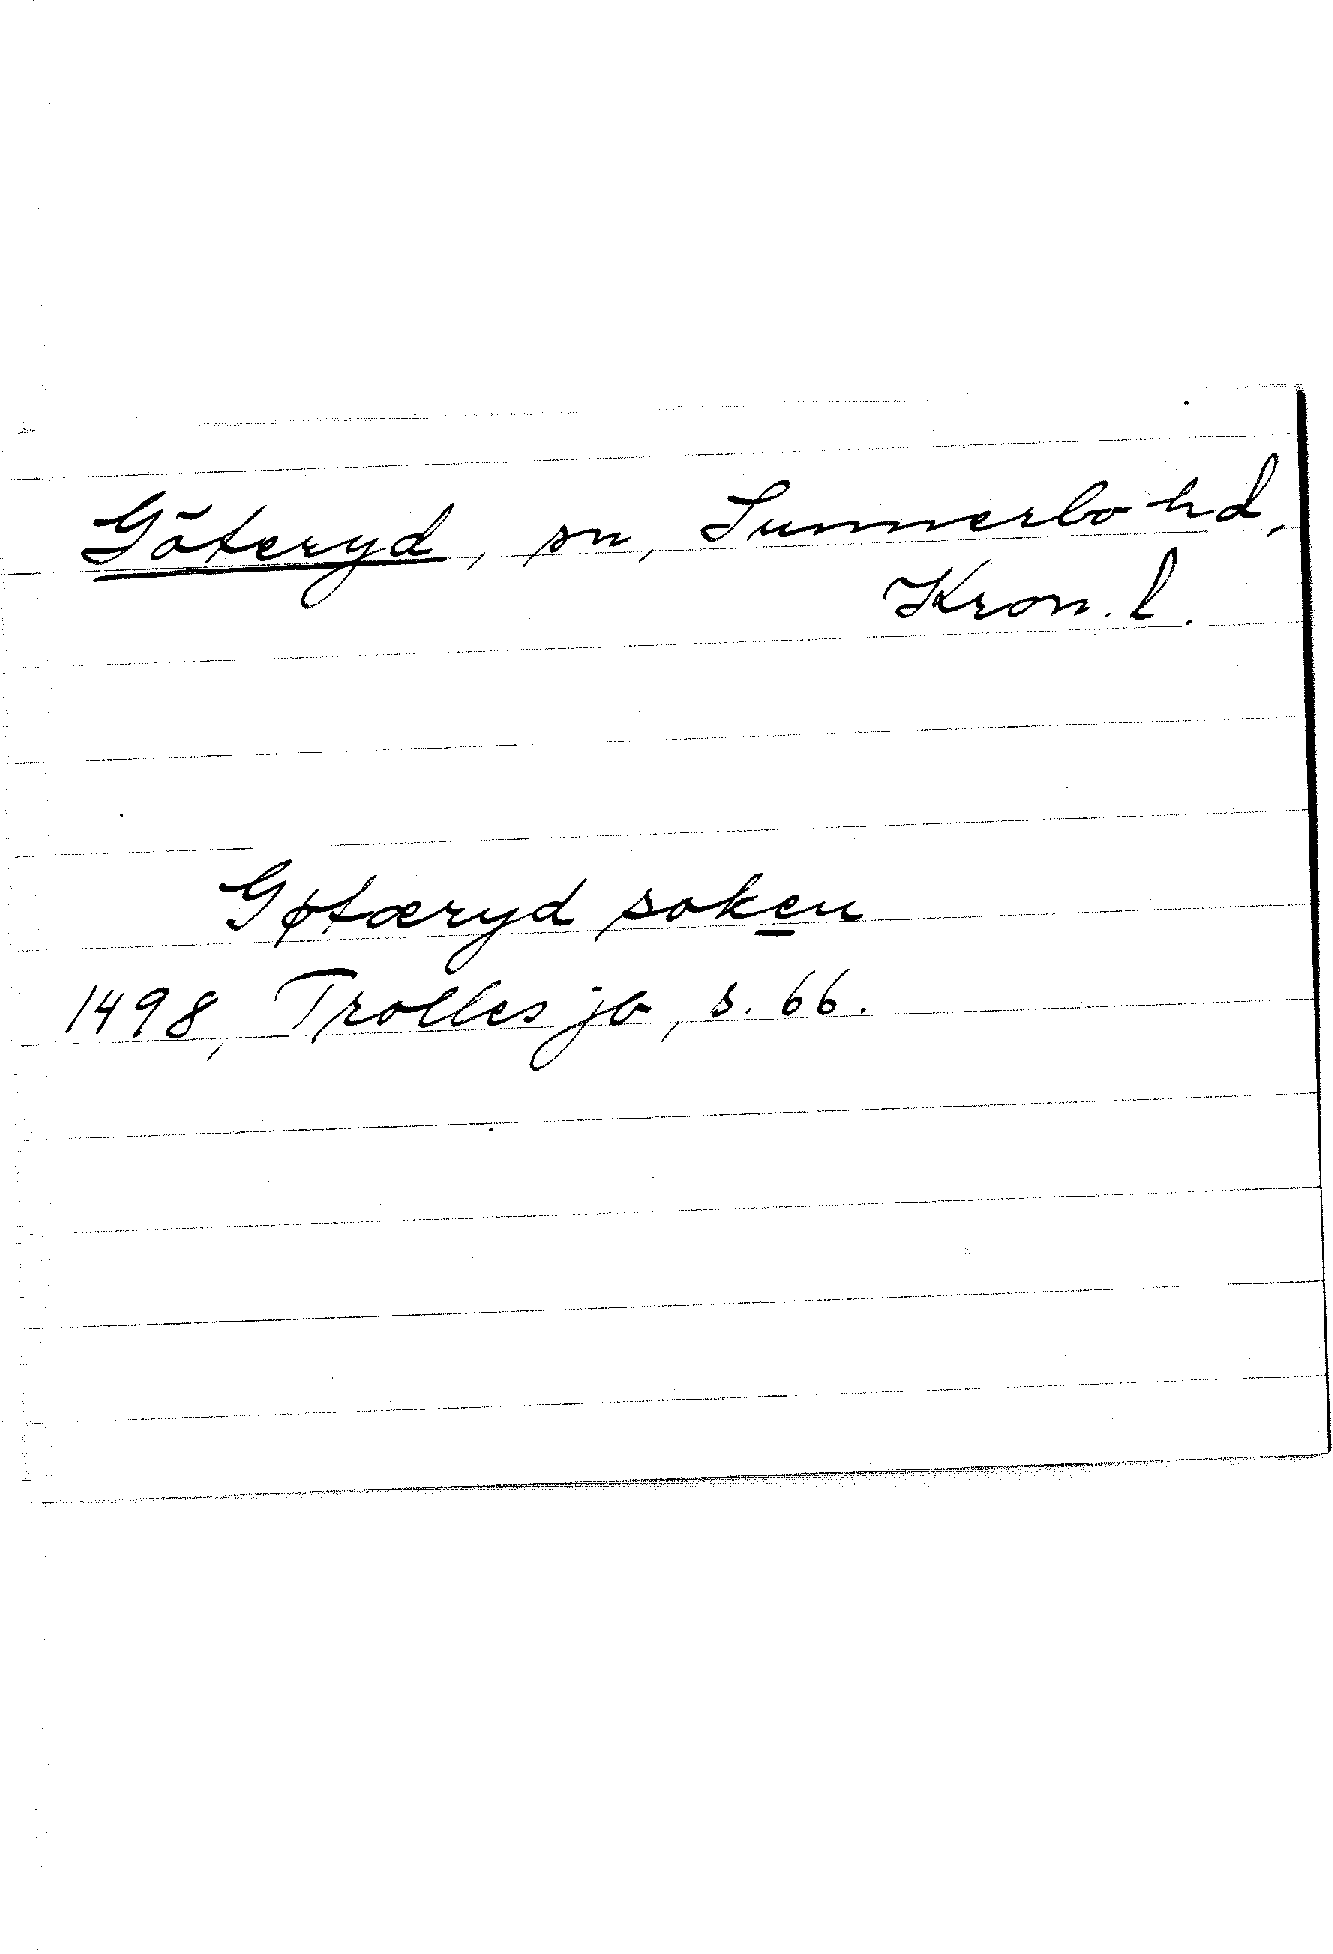 Göteryd, sn, Sunnerbo hd,
Kron. l.
Gøtæryd soken
1498, Trolles jb, s. 66.